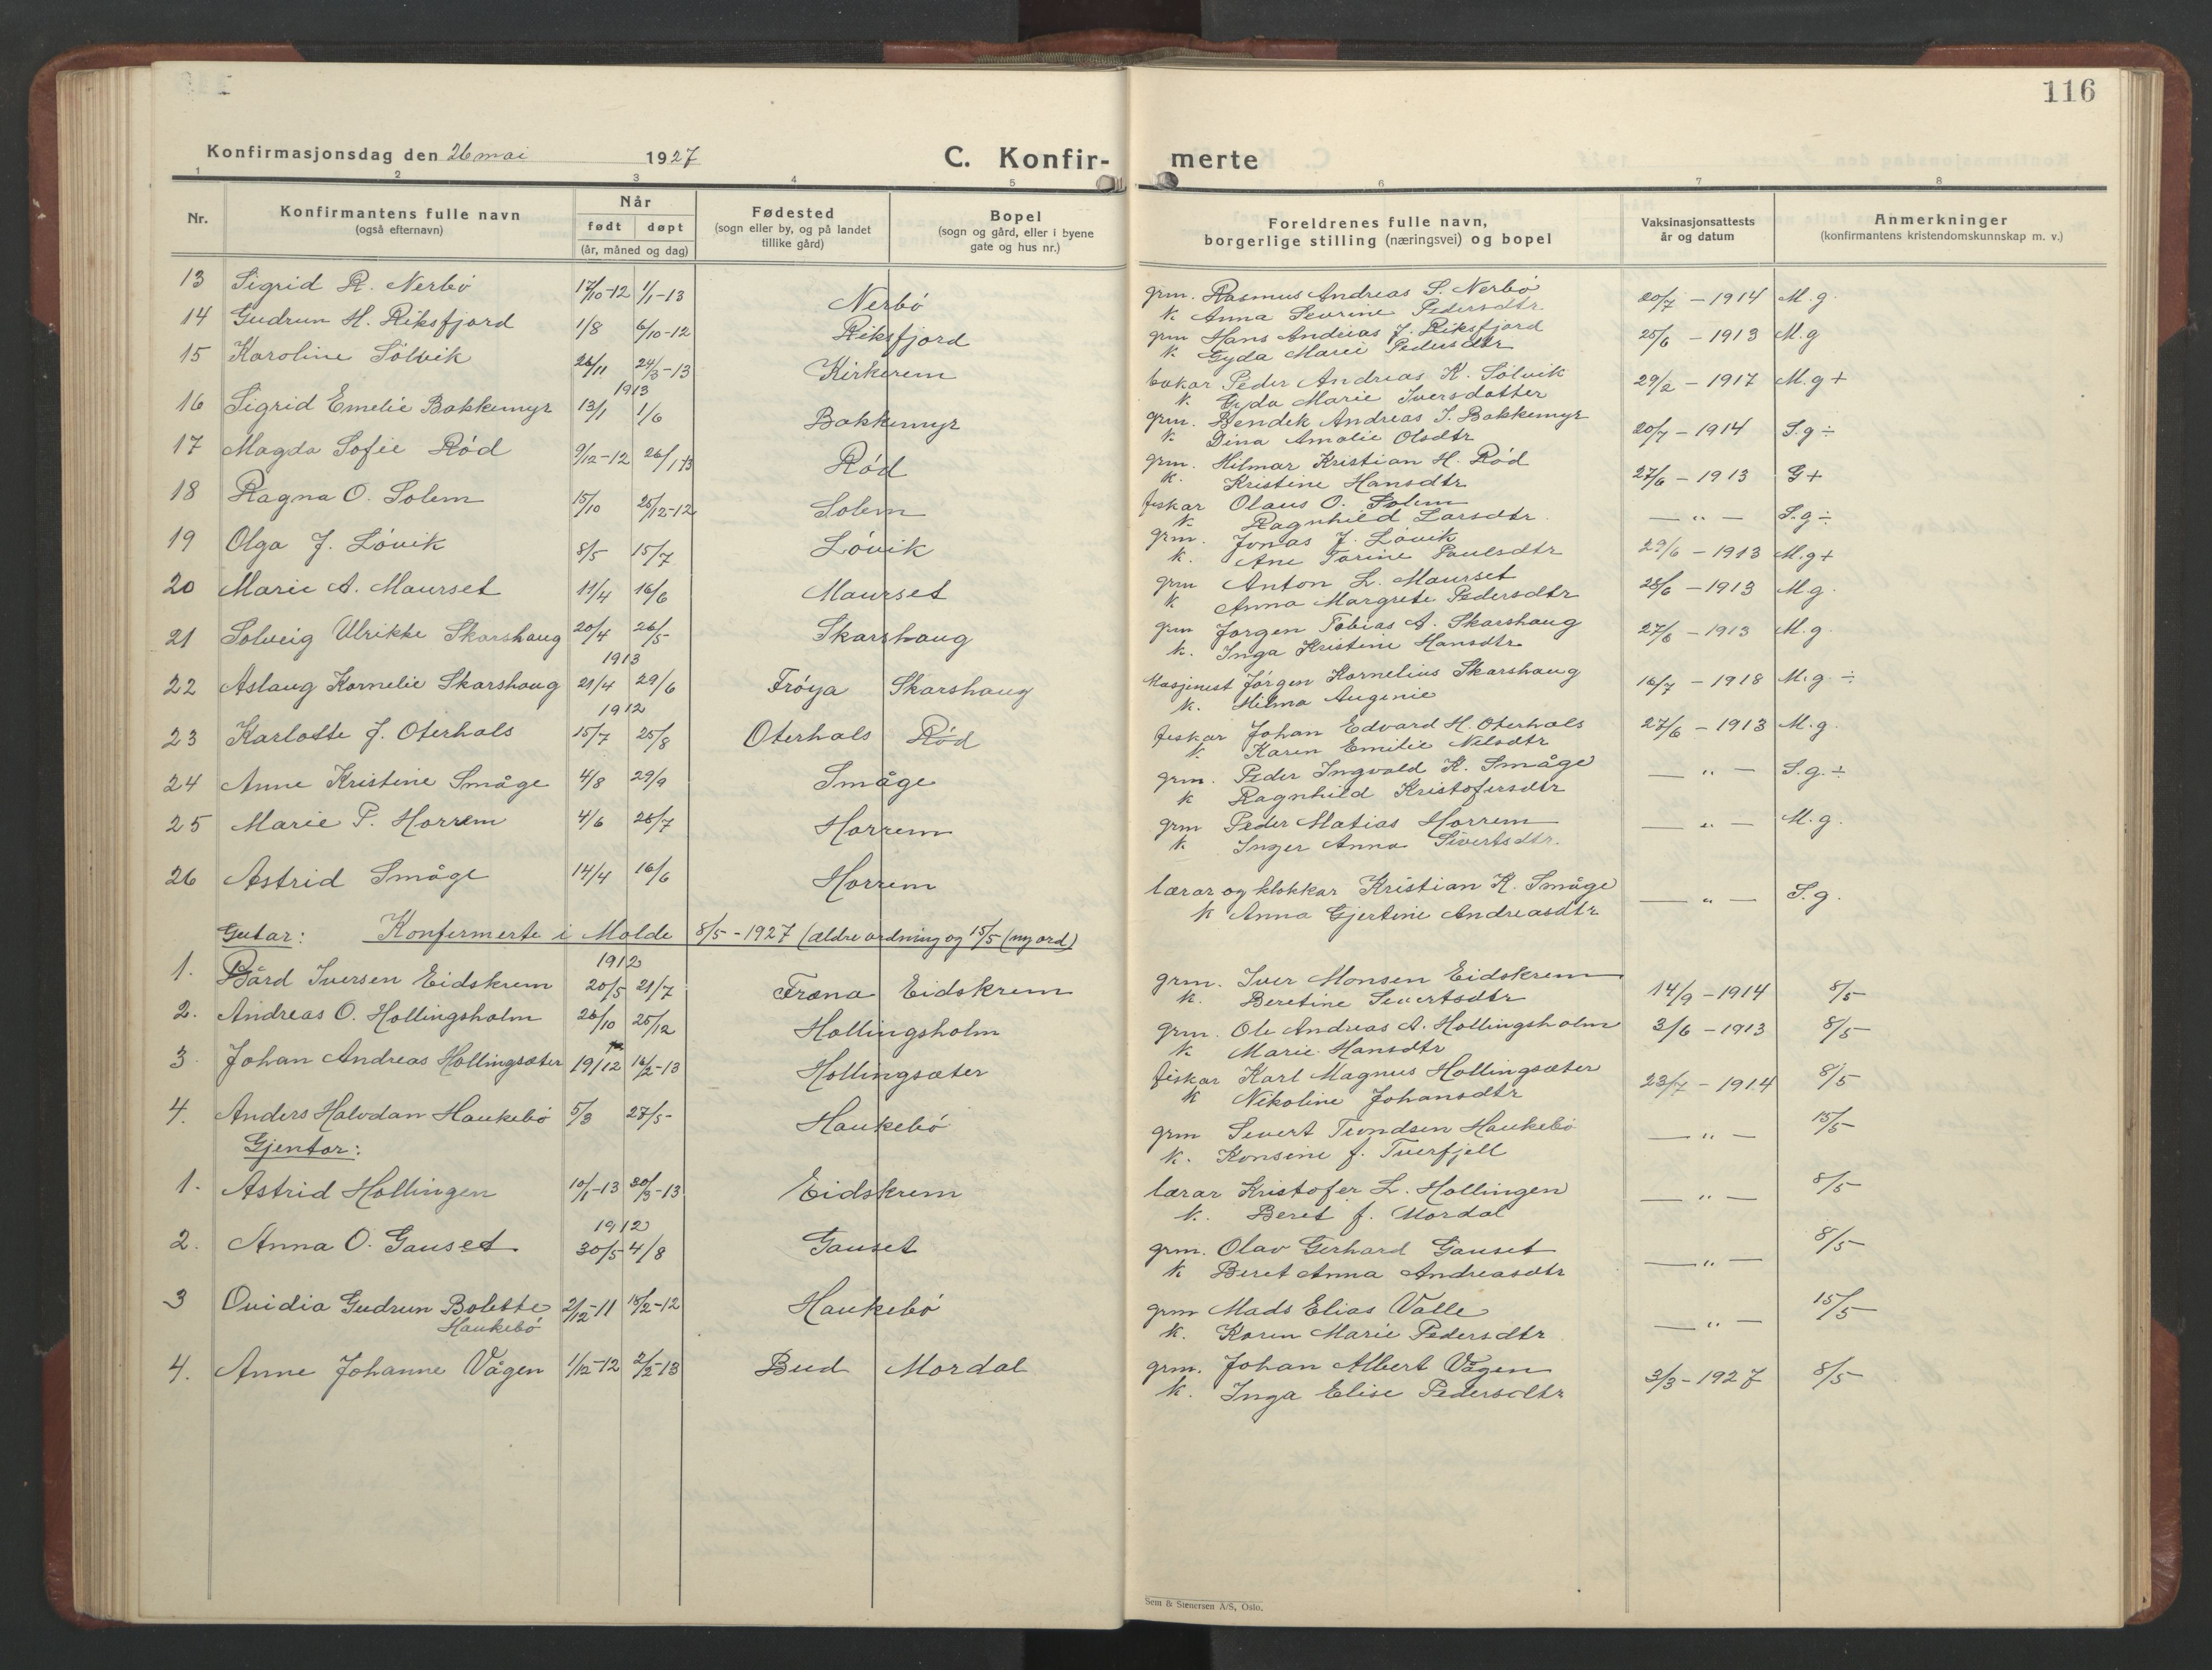 116
Konfirmasjonsdag den 26 mai 1927 C. Konfir- merte
1 2 3 4 5 6 7 8
Nr. Konfirmantens fulle navn (også efternavn) Når født døpt (år, måned og dag) Fødested (sogn eller by, og på landet tillike gård) Bopel (sogn og gård, eller i byene gate og hus nr.) Foreldrenes fulle navn, borgerlige stilling (næringsvei) og bopel Vaksinasjonsattests år og datum Anmerkninger (konfirmantens kristendomskunnskap m. v.)
13 Sigrid R. Nerbö 17/10-12 1/1-13 Nerbö grm. Rasmus Andreas S. Nerbö 20/7 - 1914 M.g.
k. Anna Sevrine Pedersdtr.
14 Gudrun H. Riksfjord 1/8 6/10-12 Riksfjord grm Hans Andreas J. Riksfjord 25/6 - 1913 M.g
k. Gyda Marie Pedersdtr
15 Karoline Sölvik 26/11 24/3-13 Kirkerem bakar Peder Andreas K. Sölvik 29/2 - 1917 M.g+
k. Gyda Marie Iversdatter
1913
16 Sigrid Emelie Bakkemyr 13/1 1/6 Bakkemyr grm. Bendik Andreas J. Bakkemyr 20/7 - 1914 S.g ÷
k. Dina Amalie Olsdtr
17 Magda Sofie Röd 9/12-12 26/1 13 Röd grm. Hilmar Kristian H. Röd 27/6 - 1913 G+
k. Kristine Hansdtr
18 Ragna O. Solem 15/10 25/12-12 Solem fiskar Olaus O. Solem — " — S.g ÷
k. Ragnhild Larsdtr.
19 Olga J. Lövik 8/5 15/7 Lövik grm. Jonas J. Lövik 29/6 - 1913 M.g+
k. Ane Tarine Paulsdtr
20 Marie A. Maurset 11/4 16/6 Maurset grm Anton L. Maurset 28/6 - 1913 M.g.
k. Anna Margrete Pedersdtr
21 Solveig Ulrikke Skarshaug 20/4 26/5 Skarshaug grm Jørgen Tobias A. Skarshaug 27/6 - 1913 M.g.
k. Inga Kristine Hansdtr
1913
22 Aslaug Kornelie Skarshaug 21/4 29/6 Fröya Skarshaug Masjenist Jørgen Kornelius Skarshaug 16/7 - 1918 M.g. ÷
k. Hilma Augenie
1912
23 Karlotte J. Oterhals 15/7 25/8 Oterhals Röd fiskar Johan Edvard H. Oterhals 27/6 - 1913 M.g.
k. Karen Emilie Nilsdtr
24 Anne Kristine Småge 4/8 29/9 Småge grm. Peder Ingvald K. Småge — " — S.g. ÷
k Ragnhild Kristofersdtr
25 Marie P. Horrem 4/6 28/7 Horrem grm Peder Matias Horrem — " — M.g.
k. Inger Anna Sivertsdtr.
26 Astrid Småge 14/4 16/6 Horrem lærar og klokkar Kristian K. Småge — " — S.g.
k Anna Gjertine Andreasdtr
Gutar: Konfermerte i Molde 8/5 - 1927 (ældre ordning og 15/5 (ny ord)
1912
1. Bård Iversen Eidskrem 20/5 21/7 Fræna Eidskrem grm. Iver Monsen Eidskrem 14/9 - 1914 8/5
k. Beretine Sivertsdtr
2. Andreas O. Hollingsholm 26/10 25/12 Hollingsholm grm. Ole Andreas A. Hollingsholm 3/6 - 1913 8/5
k Marie Hansdtr
3 Johan Andreas Hollingsæter 19/12 16/2-13 Hollingsæter fiskar Karl Magnus Hollingsæter 23/7 - 1914 8/5
k Nikoline Johansdtr
4. Anders Halvdan Haukebö 5/3 27/5- Haukebö grm Sivert Trondsen Haukebö — " — 15/5
k. Konsine f. Tverfjell
Gjentor:
1. Astrid Hollingen 10/1-13 30/3-13 Eidskrem lærar Kristofer L. Hollingen — " — 8/5
k. Beret f. Mordal
1912
2. Anna O. Gauset 30/5 4/8 Gauset grm. Olav Gerhard Gauset — " — 8/5
k Beret Anna Andreasdtr
3 Ovidia Gudrun Bolette 2/12-11 18/2-12 Haukebö grm Mads Elias Valle — " — 15/5
Haukebö k. Karen Marie Pedersdtr
4. Anne Johanne Vågen 1/12-12 2/2-13 Bud Mordal grm. Johan Albert Vågen 3/3 - 1927 8/5
k. Inga Elise Pedersdtr
Sem & Stenersen A/S, Oslo.